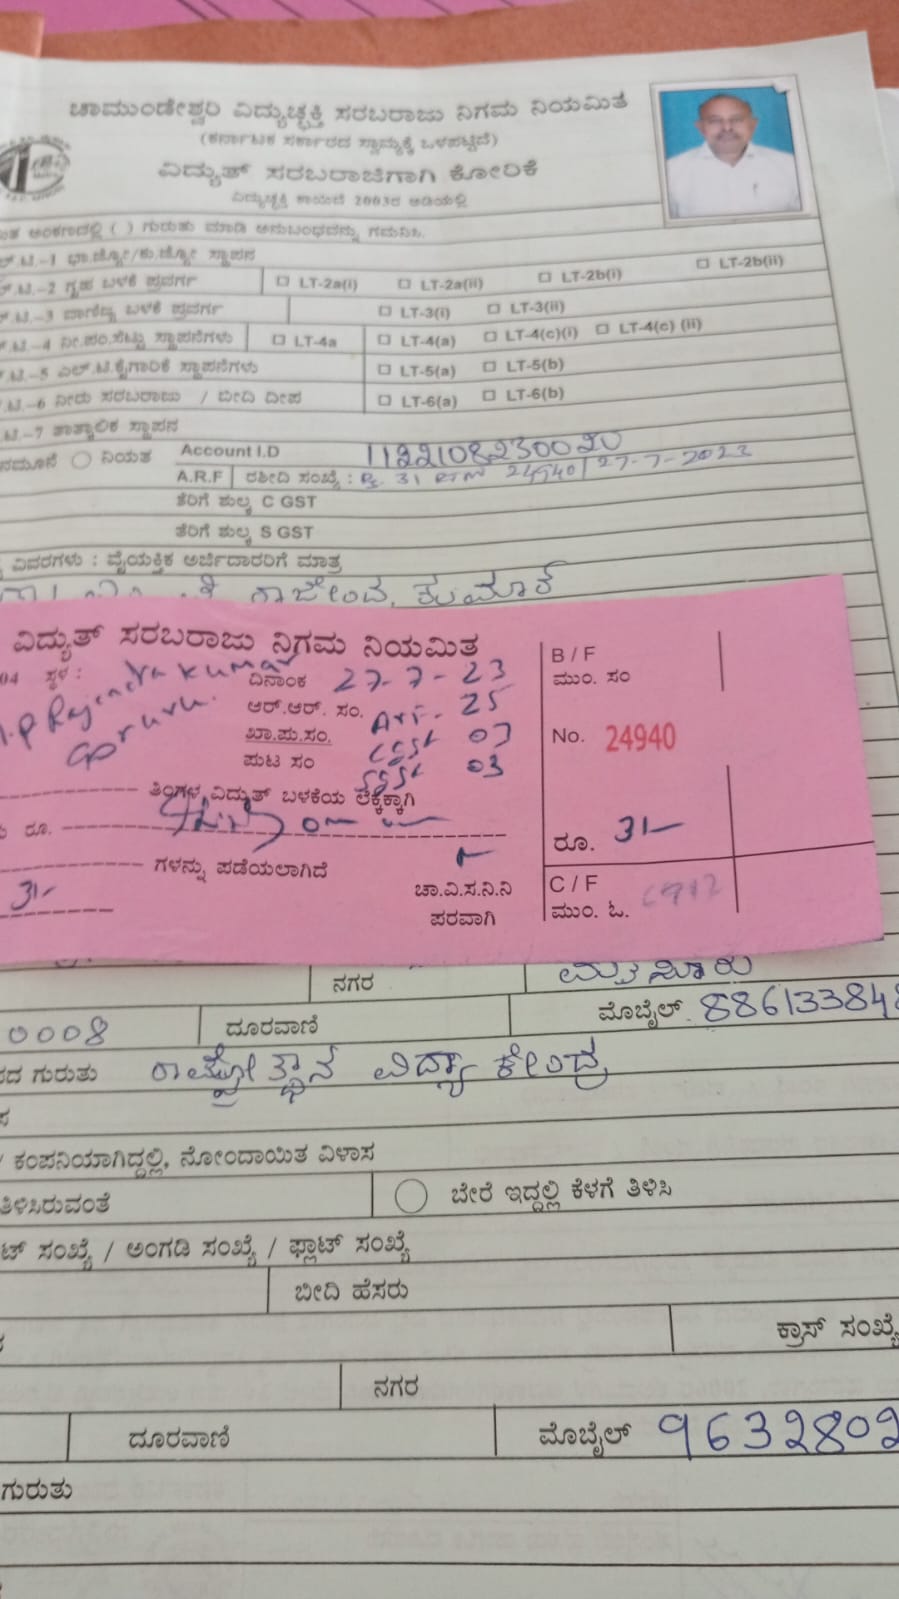 ಚಾಮುಂಡೇಶ್ವರಿ ವಿದ್ಯುಚ್ಛಕ್ತಿ ಸರಬರಾಜು ನಿಗಮ ನಿಯಮಿತ
(ಕರ್ನಾಟಕ ಸರ್ಕಾರದ ಸ್ವಾಮ್ಯಕ್ಕೆ ಒಳಪಟ್ಟಿದೆ)
ವಿದ್ಯುತ್ ಸರಬರಾಜಿಗಾಗಿ ಕೋರಿಕೆ
ವಿದ್ಯುಚ್ಛಕ್ತಿ ಕಾಯಿದೆ 2003ರ ಅಡಿಯಲ್ಲಿ
ಅಂಕಣದಲ್ಲಿ ( ) ಗುರುತು ಮಾಡಿ ಅನುಬಂಧವನ್ನು ಗಮನಿಸಿ.
.ಟಿ.-1 ಭಾ.ಜ್ಯೋ/ಕು.ಜ್ಯೋ ಸ್ಥಾಪನ
.ಟಿ.-2 ಗೃಹ ಬಳಕೆ ಪ್ರವರ್ಗ LT-2a(i) LT-2a(ii) LT-2b(i) LT-2b(ii)
.ಟಿ.-3 ವಾಣಿಜ್ಯ ಬಳಕೆ ಪ್ರವರ್ಗ LT-3(i) LT-3(ii)
.ಟಿ.-4 ನೀ.ಪಂ.ಸೆಟ್ಟು ಸ್ಥಾಪನೆಗಳು LT-4a LT-4(a) LT-4(c)(i) LT-4(c) (ii)
.ಟಿ.-5 ಎಲ್.ಟಿ.ಕೈಗಾರಿಕೆ ಸ್ಥಾಪನೆಗಳು LT-5(a) LT-5(b)
.ಟಿ.-6 ನೀರು ಸರಬರಾಜು / ಬೀದಿ ದೀಪ LT-6(a) LT-6(b)
.ಟಿ.-7 ತಾತ್ಕಾಲಿಕ ಸ್ಥಾಪನ
ನಮೂನೆ ನಿಯತ Account I.D 1122108230020
A.R.F ರಶೀದಿ ಸಂಖ್ಯೆ : Rs. 31 24940/27-7-2023
ತೆರಿಗೆ ಶುಲ್ಕ C GST
ತೆರಿಗೆ ಶುಲ್ಕ S GST
ವಿವರಗಳು : ವೈಯಕ್ತಿಕ ಅರ್ಜಿದಾರರಿಗೆ ಮಾತ್ರ
ರಾಜೇಂದ್ರ ಕುಮಾರ್
ವಿದ್ಯುತ್ ಸರಬರಾಜು ನಿಗಮ ನಿಯಮಿತ
B / F
ಮುಂ. ಸಂ
04 ಸ್ಥಳ : ದಿನಾಂಕ 27-7-23
.P Rajendra Kumar
ಆರ್.ಆರ್. ಸಂ. Arf- 25
ಖಾ.ಪು.ಸಂ. CGST 03
ಪುಟ ಸಂ SGST 03
No. 24940
ತಿಂಗಳ ವಿದ್ಯುತ್ ಬಳಕೆಯ ಲೆಕ್ಕಕ್ಕಾಗಿ
ರೂ.
ರೂ. 31-
ಗಳನ್ನು ಪಡೆಯಲಾಗಿದೆ
31-
ಚಾ.ವಿ.ಸ.ನಿ.ನಿ
ಪರವಾಗಿ
C / F
ಮುಂ. ಓ.
ನಗರ ಮೈಸೂರು
0008 ದೂರವಾಣಿ ಮೊಬೈಲ್ 886133848
ಗುರುತು ರಾಷ್ಟ್ರೋತ್ಥಾನ ವಿದ್ಯಾ ಕೇಂದ್ರ
/ ಕಂಪನಿಯಾಗಿದ್ದಲ್ಲಿ, ನೋಂದಾಯಿತ ವಿಳಾಸ
ತಿಳಿಸಿರುವಂತೆ ಬೇರೆ ಇದ್ದಲ್ಲಿ ಕೆಳಗೆ ತಿಳಿಸಿ
ಟ್ ಸಂಖ್ಯೆ / ಅಂಗಡಿ ಸಂಖ್ಯೆ / ಫ್ಲಾಟ್ ಸಂಖ್ಯೆ
ಬೀದಿ ಹೆಸರು
ಕ್ರಾಸ್ ಸಂಖ್ಯೆ
ನಗರ
ದೂರವಾಣಿ ಮೊಬೈಲ್ 9632802
ಗುರುತು